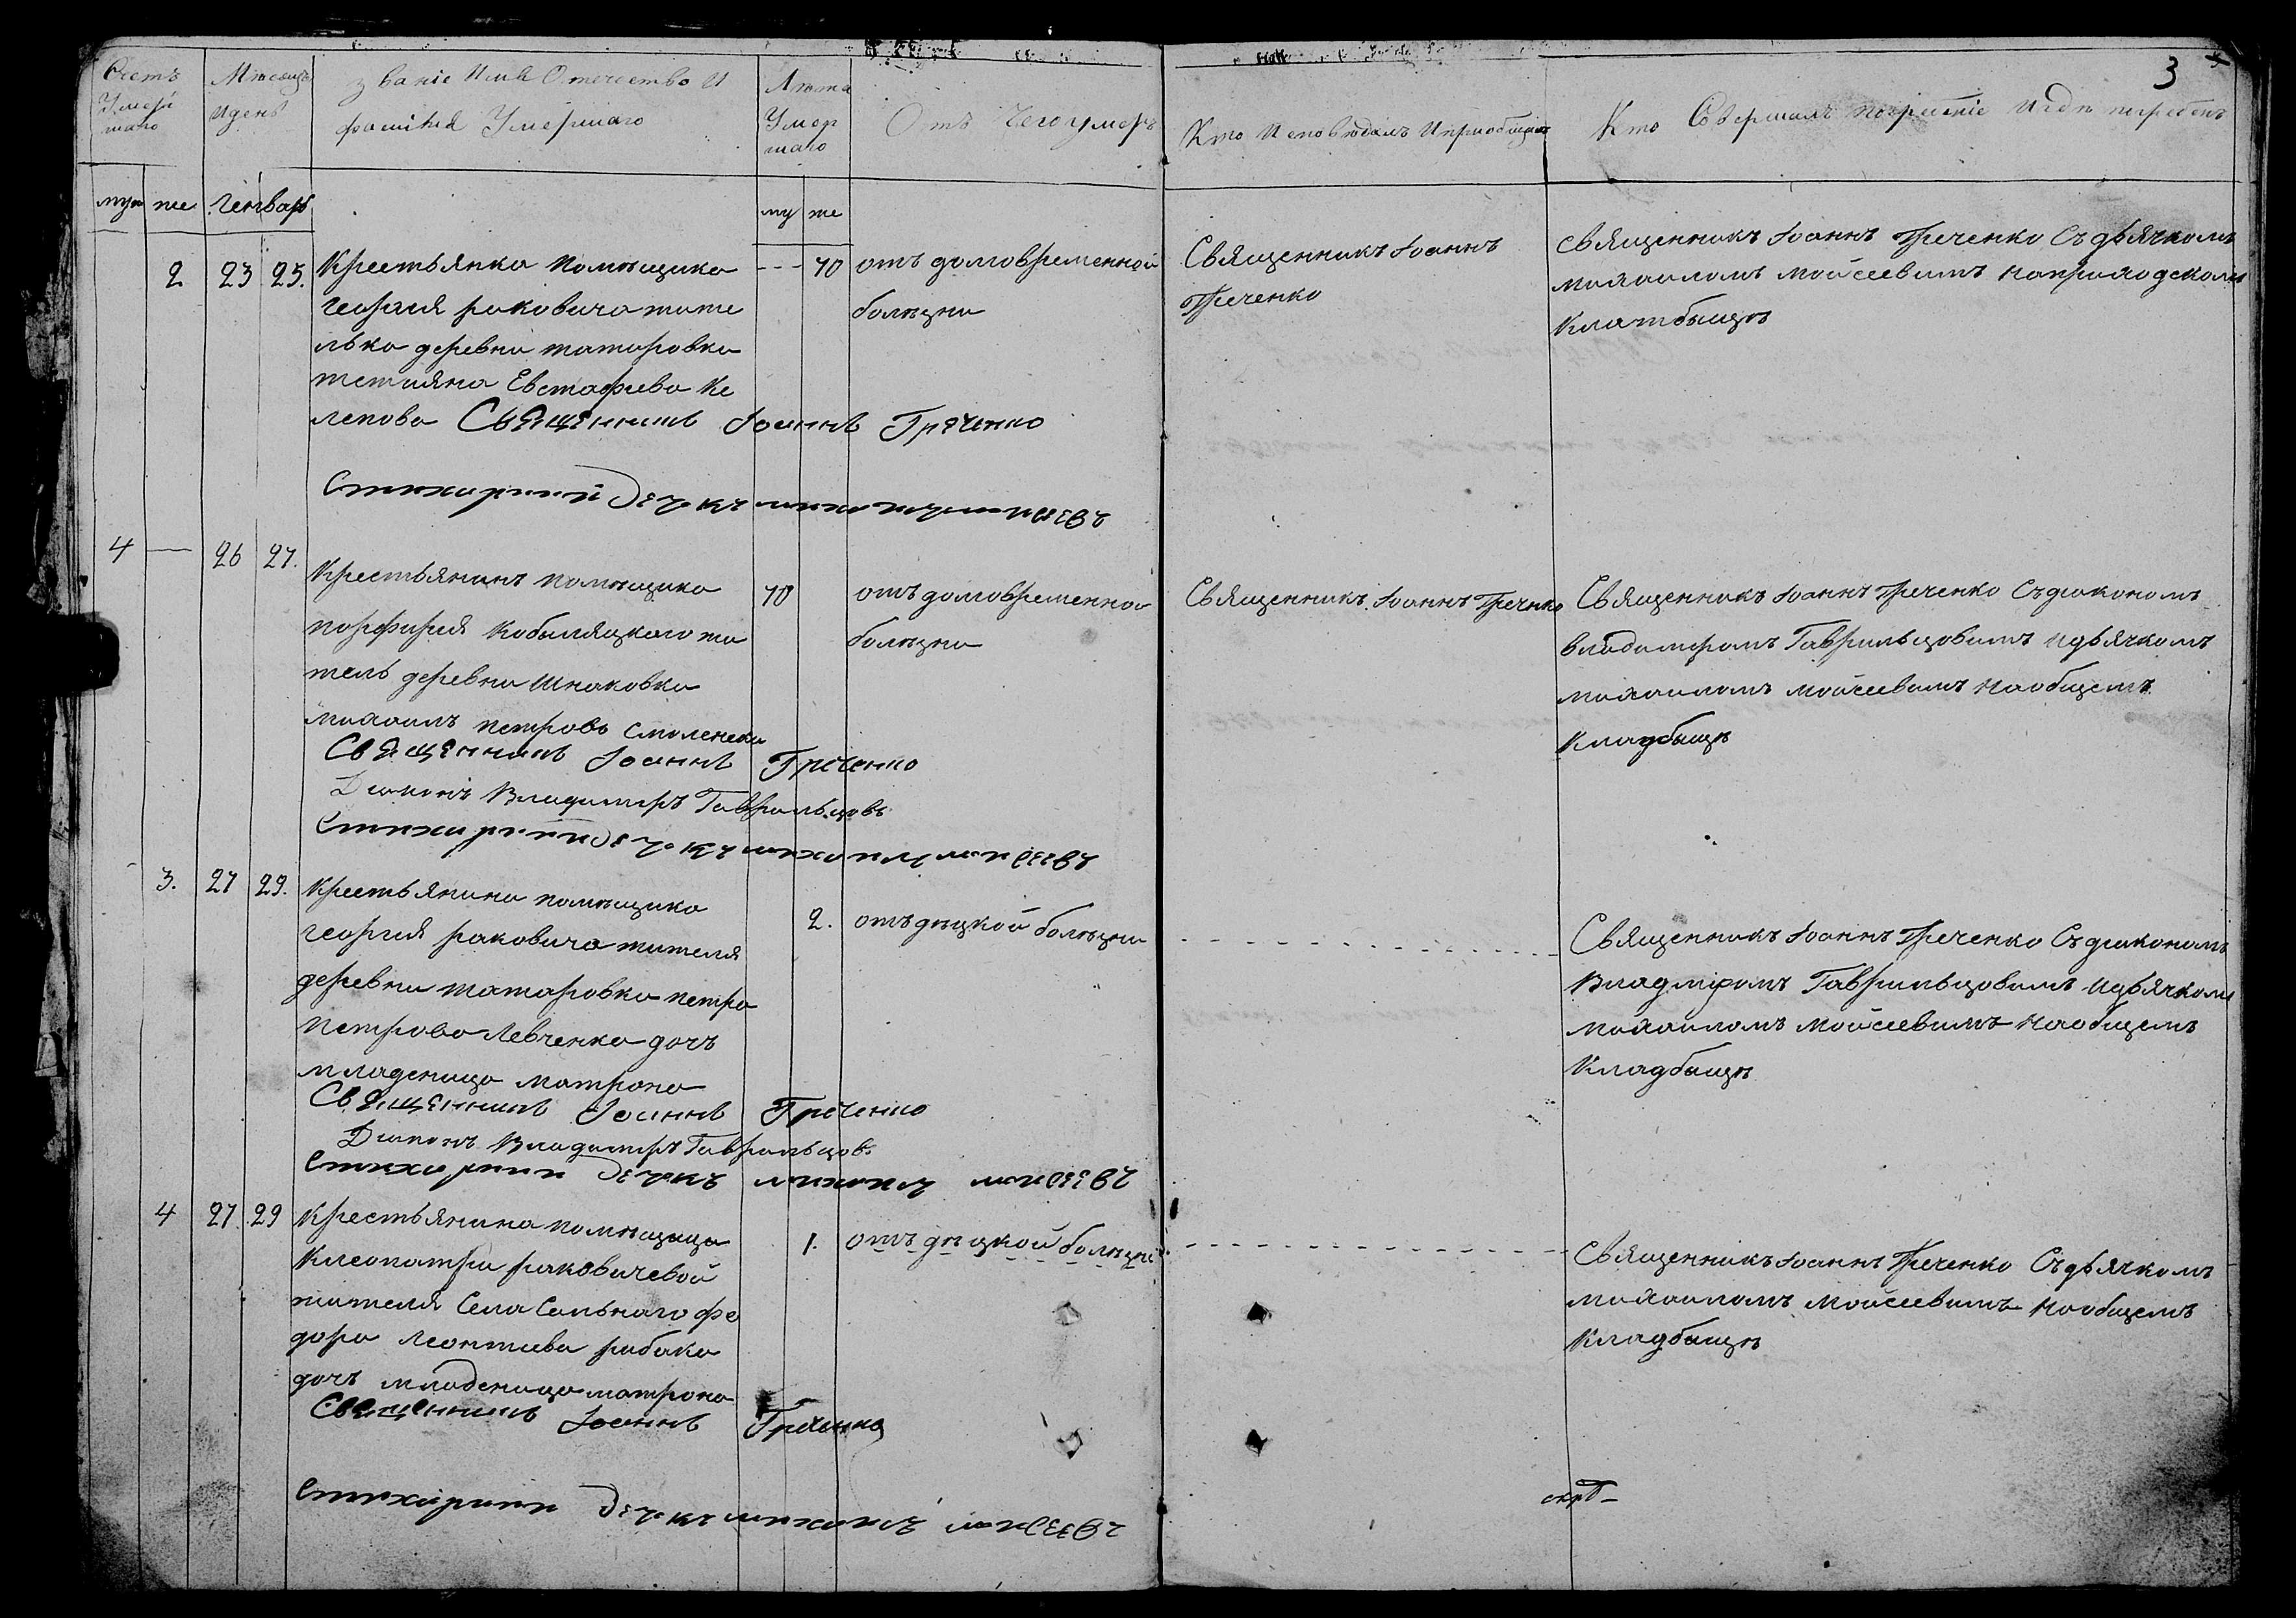 3
Счетъ Умершаго
Мѣсяцъ и день
Званіе Имя Отечество и фамилія Умершаго
Лѣта Умершаго
Отъ чего умеръ
Кто Исповѣдалъ и пріобщилъ
Кто Совершалъ погребеніе и гдѣ погребенъ
муж же Генварь му же
2 23 25. Крестьянка помѣщика --- 70 отъ долговременной
Георгия раковича жите
болѣзни
лька деревни татаровки
тетияна Евстафиева Ке
лепова Священникъ Іоаннъ Греченко
Стихарный Дечокъ михаилъ моисеевъ
Священникъ Іоаннъ
Греченко
священникъ Іоаннъ Греченко Съ дьячкомъ
михаиломъ мойсеевимъ на приходскомъ
Кладбыщѣ
4 — 26 27. Крестьянинъ помѣщика 70 отъ долговременной
порфирия Кобыляцкаго жи
болѣзни
тель деревни Шпаковки
михаилъ петровъ Смоленски
Священникъ Іоаннъ Греченко
Диаконъ Владимиръ Гаврильцовъ
Стихарный Дечокъ михаилъ моисеевъ
Священникъ Іоаннъ Греченко
Священникъ Іоаннъ Греченко Съ диакономъ
владимиромъ Гаврильцовимъ и дьячкомъ
михаиломъ мойсеевимъ на общемъ
Кладбыщѣ
3. 27 29. Крестьянина помѣщика 2. отъ дѣцкой болѣзни
георгия раковича жителя
деревни татаровки петра
петрова Левченка дочъ
младеница матрона
Священникъ Іоаннъ Греченко
Диаконъ Владимиръ Гаврильцовъ
Стихарный Дечокъ михаилъ моисеевъ
Священникъ Іоаннъ Греченко Съ диакономъ
Владміромъ Гаврильцовимъ и дьячкомъ
михаиломъ мойсеевимъ на общемъ
Кладбыщѣ
4 27 29 Крестьянина помѣщици 1. отъ дѣцкой болѣзни
Клеопатри раковичевой
жителя Села Сальнаго фе
дора Леонтиева рибака
дочъ младеница матрона
Священникъ Іоаннъ Греченко
Стихарный Дечокъ михаилъ моисеевъ
Священникъ Іоаннъ Греченко Съ дьячкомъ
михаиломъ мойсеевимъ на общемъ
Кладбыщѣ